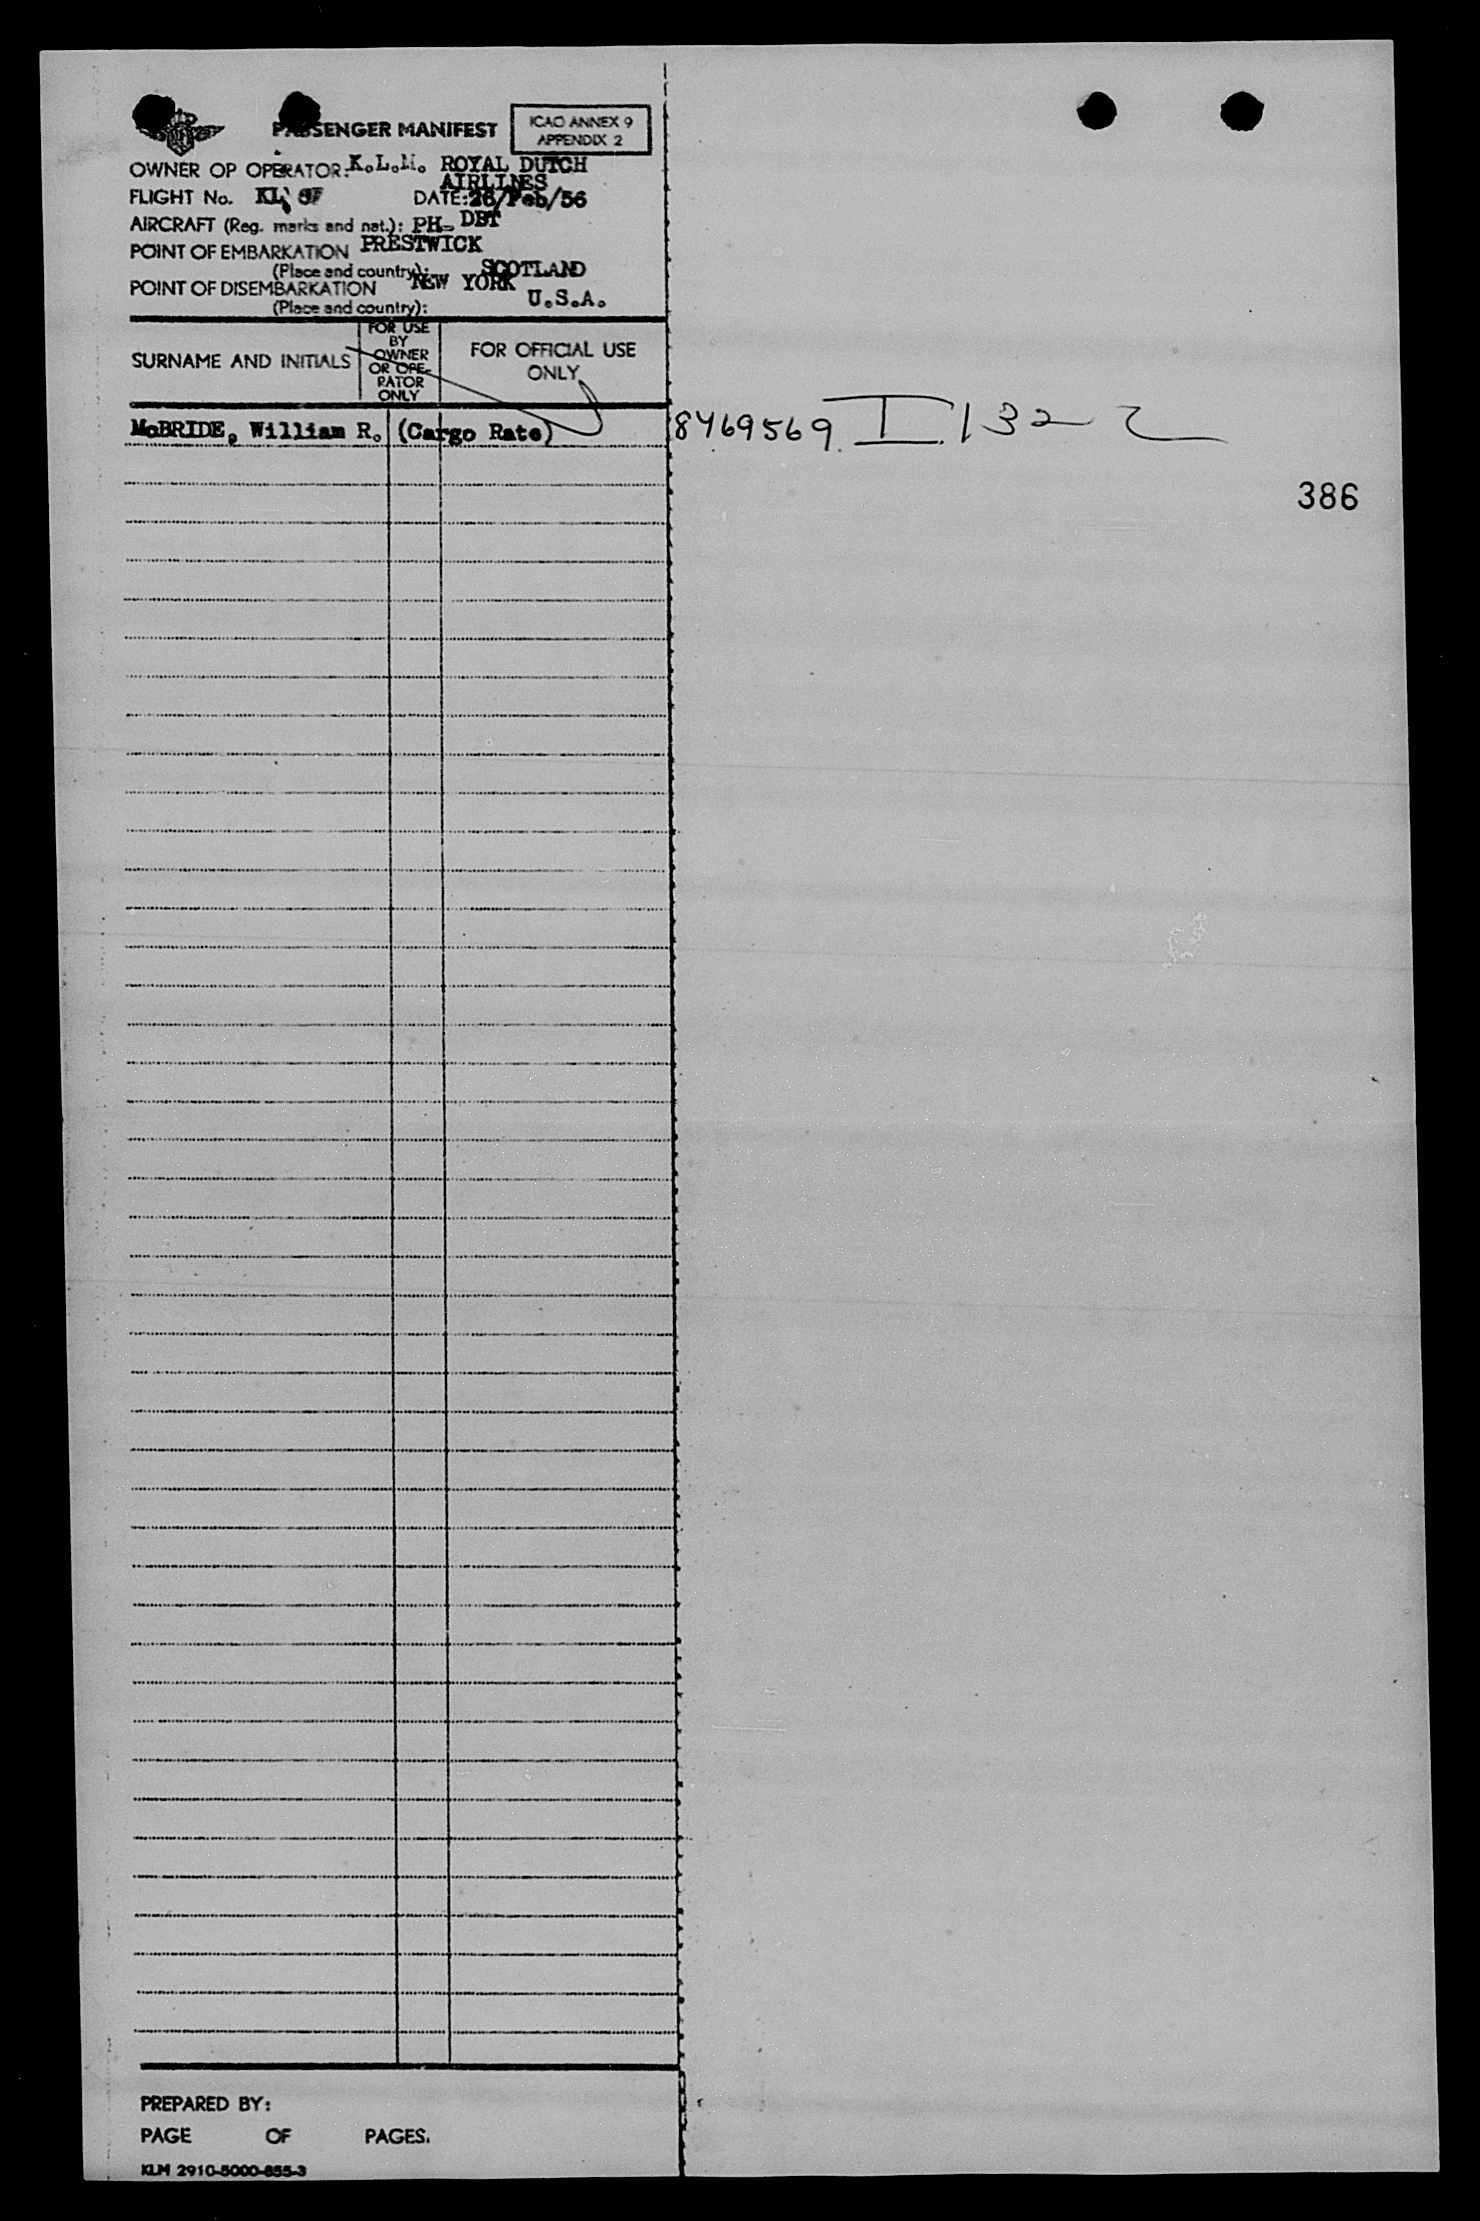 PASSENGER MANIFEST
ICAO ANNEX 9
APPENDIX 2
OWNER OP OPERATOR: K.L.M. ROYAL DUTCH
AIRLINES
FLIGHT No. KL DATE: 26/Feb/56
AIRCRAFT (Reg. marks and nat.): PH- DBT
POINT OF EMBARKATION PRESTWICK
(Place and country): SCOTLAND
POINT OF DISEMBARKATION NEW YORK
(Place and country): U.S.A.
SURNAME AND INITIALS
FOR USE
BY
OWNER
OR OPE-
RATOR
ONLY
FOR OFFICIAL USE
ONLY
McBRIDE, William R. (Cargo Rate) 8469569 I 132
386
PREPARED BY:
PAGE OF PAGES.
KLM 2910-5000-855-3